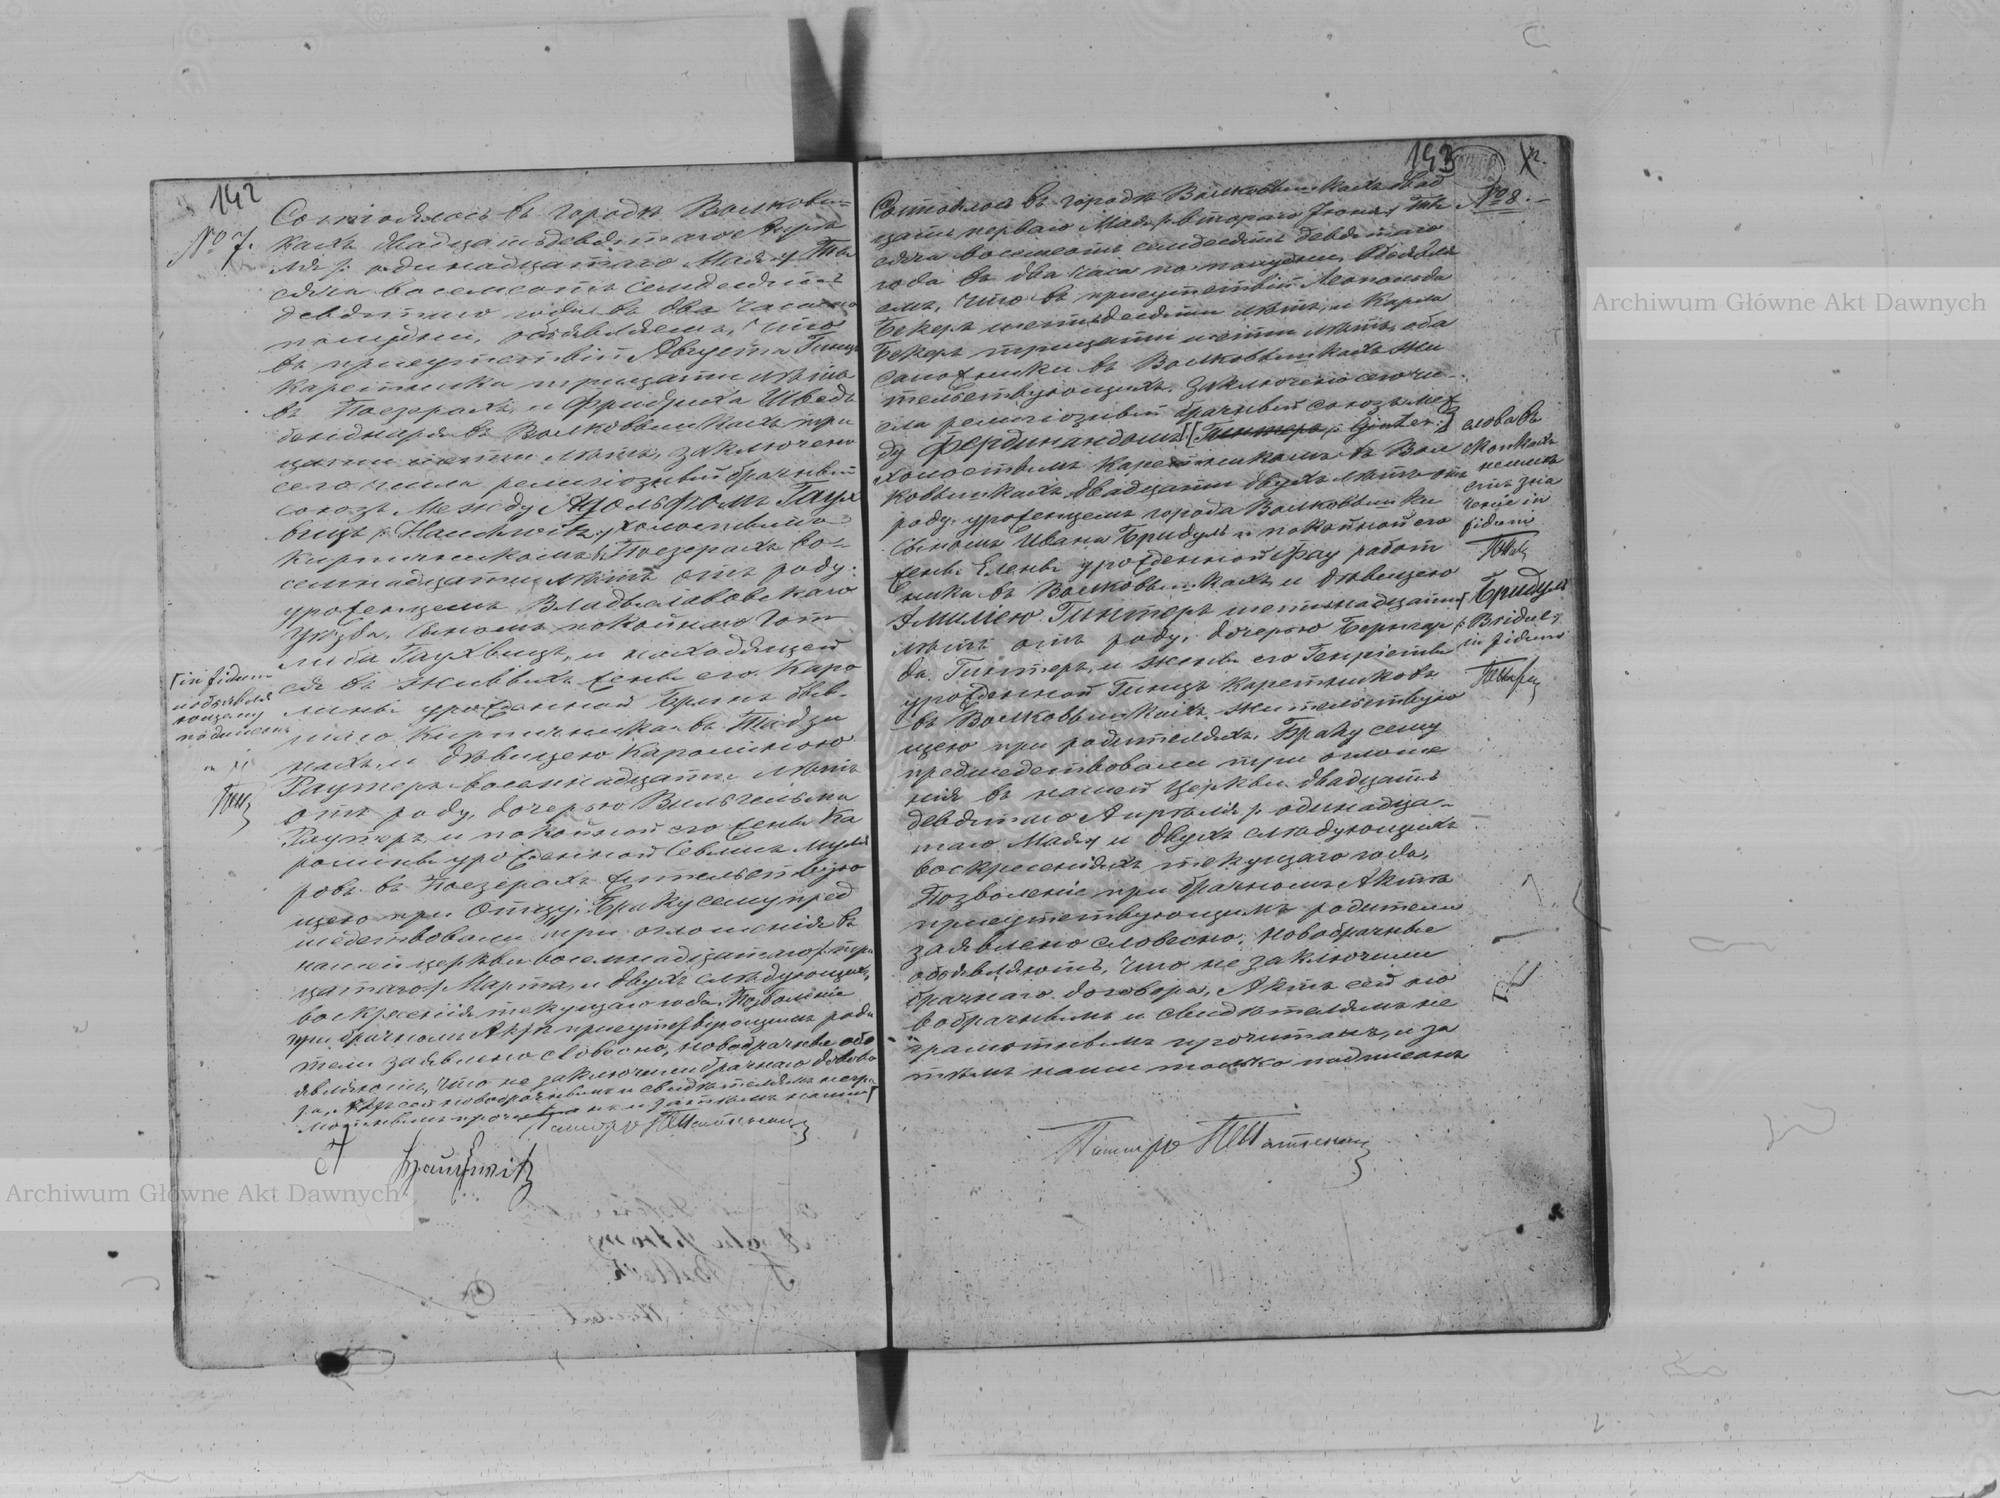 142
№ 7.
Состоялось въ городѣ Волковы-
кахъ двадцатьдевятаго Апрѣ
ля /: одинадцатаго Мая :/ Ты
сяча восемсотъ семдесятъ
девятаго года въ два часа по
полудни, объявляемъ, что
въ присутствіи Августа Гинцъ
каретника тридцати лѣтъ
въ Поезерахъ и Фридриха Шведъ
въ Волковышкахъ три
цати пяти лѣтъ, заключено
сего числа религіозный брачный
союзъ Между Адольфомъ Гаух
вицъ /: Hauchwitz :/ холостымъ
кирпичникомъ Поезерахъ во-
семнадцати лѣтъ отъ роду
уроженцемъ Владыславовскаго
уѣзда, сыномъ покойнаго Гот
либа Гаухвицъ, и находящей
ся въ живыхъ жены его Каро
лины урожденной Брынъ быв-
шаго Кирпичника въ
нахъ, и дѣвицею Каролиною
Раутеръ восемнадцати лѣтъ
отъ роду, дочерью Вильгельма
Раутеръ и покойной его жены Ка
ролины урожденной
ровъ въ Поезерахъ жительствую
щею при Отцу; Браку сему пред
шедствовали три оглошенія въ
нашей церкви восемнадцатаго /: три
цатаго :/ Марта, и двухъ слѣдующихъ
воскресенія текущаго года. Позволеніе
при брачномъ Актѣ присутствующимъ роди
тели заявлено словесно, новобрачные объ
являютъ, что не заключили брачнаго догово
ра, Актъ сей новобрачнымъ и свидѣтелямъ негра
мотнымъ прочитанъ и затѣмъ нами
Пасторъ
[in fidem
подписанъ
A Hauchwitz
143
№ 8.
Состоялось въ городѣ Волковышкахъ двад
цать перваго Мая /: втораго Іюня :/ Ты
сяча восемсотъ семдесятъ девятаго
года въ два часа по полудни, Объявля
емъ, что въ присутствіи Леопольда
Бекеръ шестьдесяти лѣтъ, и Карла
Бекеръ тридцати шести лѣтъ, оба
сапожники въ Волковышкахъ жи
тельствующихъ, заключено сего чи-
сла религіозный брачный союзъ меж
ду Фердинандомъ [Гинтеръ /: Ginter :/]
холостымъ каретникомъ въ Вол
ковышкахъ двадцати двухъ лѣтъ отъ
роду, урожденцемъ города Волковышки
сыномъ Ивана Бридуль и покойной его
жены Елены урожденной Фау работ
ника въ Волковышкахъ и дѣвицею
Амиліею Гинтеръ шестнадцати
лѣтъ отъ роду, дочерью Бернгар
да Гинтеръ, и жены его Генріетты
урожденной Гинцъ каретниковъ
въ Волковышкахъ жительствую
щею при родителяхъ. Браку сему
предшедствовали три оглоше
нія въ нашей Церкви двадцать
девятаго Апрѣля /: одинадца-
таго Мая :/ и двухъ слѣдующихъ
воскресеніяхъ текущаго года,
Позволеніе при брачномъ Актѣ
присутствующимъ родители
заявлено словесно, новобрачные
объявляютъ, что не заключили
брачнаго договора, Актъ сей но
вобрачнымъ и свидѣтелямъ не
грамотнымъ прочитанъ, и за
тѣмъ нами только подписанъ
Пасторъ
слова въ
скопкахъ
неимѣ
етъ зна
ченіе in
fidem
Бридуль
/: Bridul :/
in fidem
Archiwum Główne Akt Dawnych
Archiwum Główne Akt Dawnych